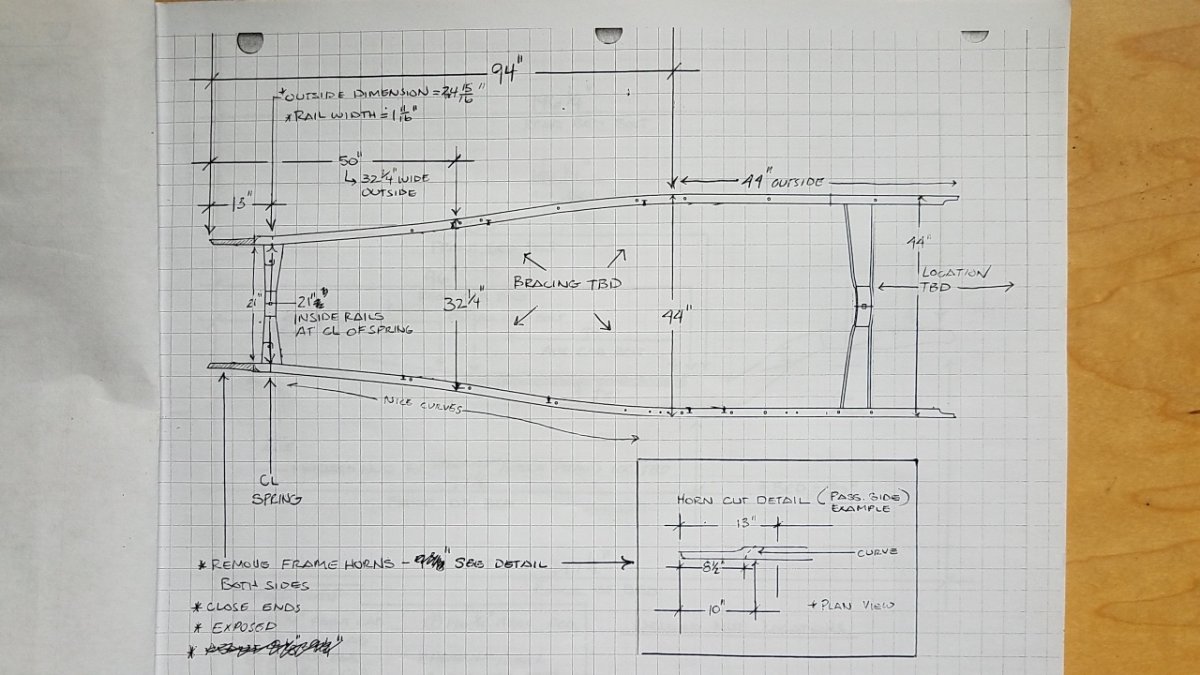 94"
*OUTSIDE DIMENSION = 24 15/16"
*RAIL WIDTH = 1 11/16"
50"
↳ 32 1/4" WIDE
OUTSIDE
44" OUTSIDE
13"
44"
BRACING TBD
LOCATION
TBD
21"
21"
INSIDE RAILS
AT CL OF SPRING
32 1/4"
44"
NICE CURVES
CL
SPRING
HORN CUT DETAIL (PASS. SIDE)
EXAMPLE
13"
CURVE
8 1/2"
10"
*PLAN VIEW
*REMOVE FRAME HORNS - SEE DETAIL
BOTH SIDES
*CLOSE ENDS
*EXPOSED
*